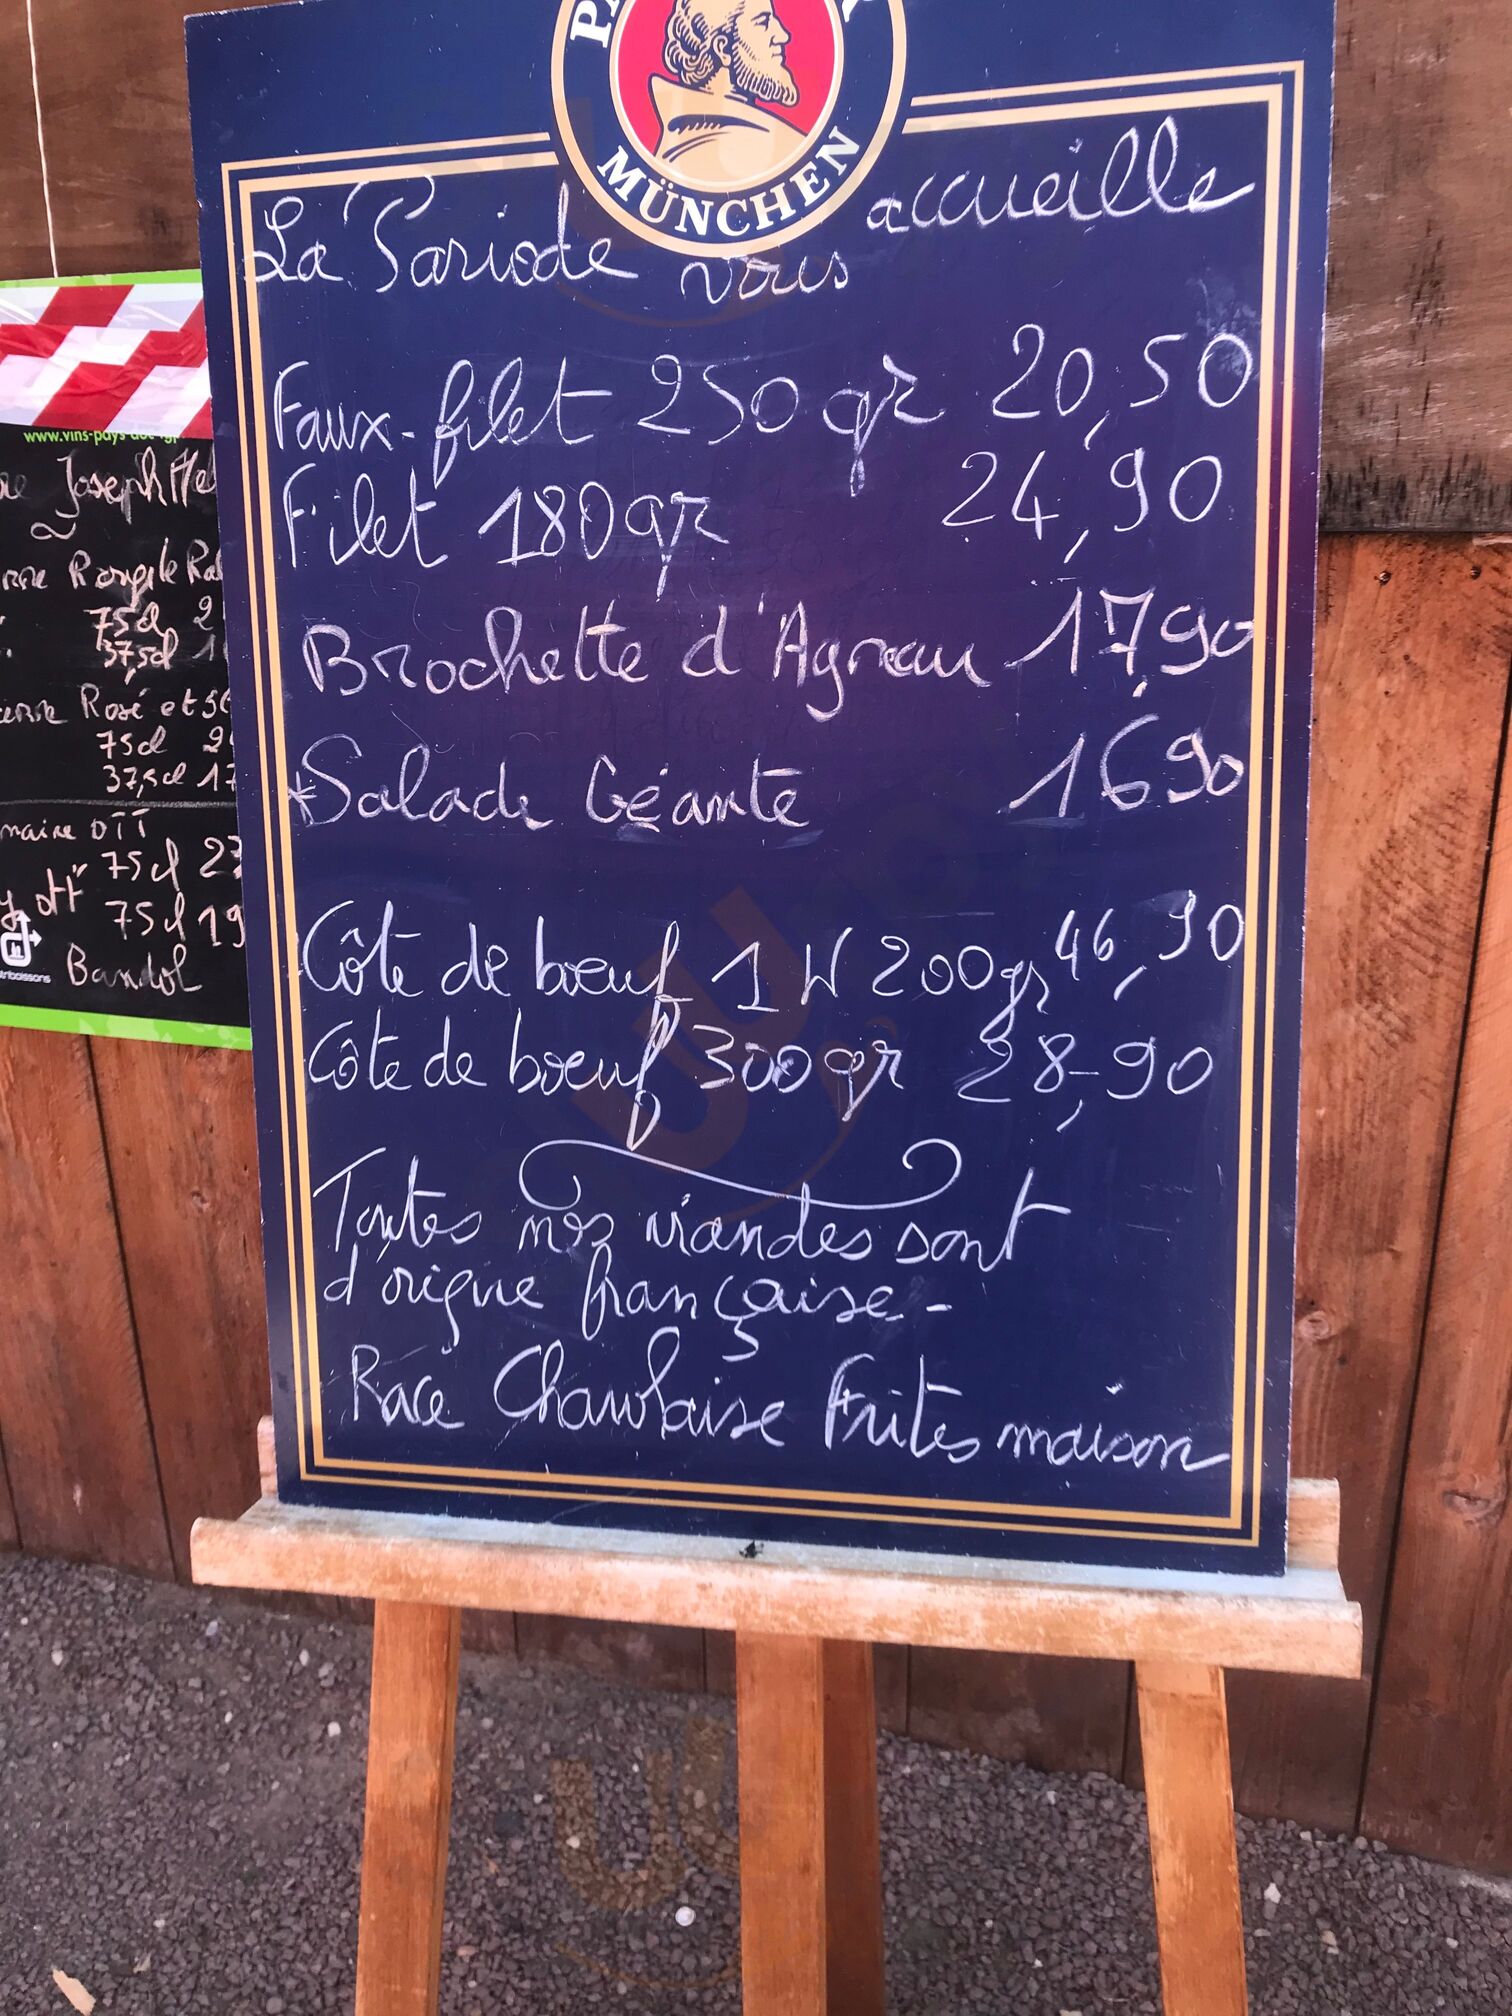 MÜNCHEN
La Pariode vous accueille
Faux-filet 250gr 20,50
Filet 180gr 24,90
Brochette d'Agneau 17,90
*Salade Géante 16,90
Côte de bœuf 1K 200gr 46,90
Côte de bœuf 300gr 28,90
Toutes nos viandes sont
d'origine française-
Race Charolaise Frites maison
www.vins-pays-doc
Joseph
75cl 2
37,5cl 1
Rosé et
75cl 2
37,5cl 17
maine OTT
75cl 27
75cl 19
Bandol